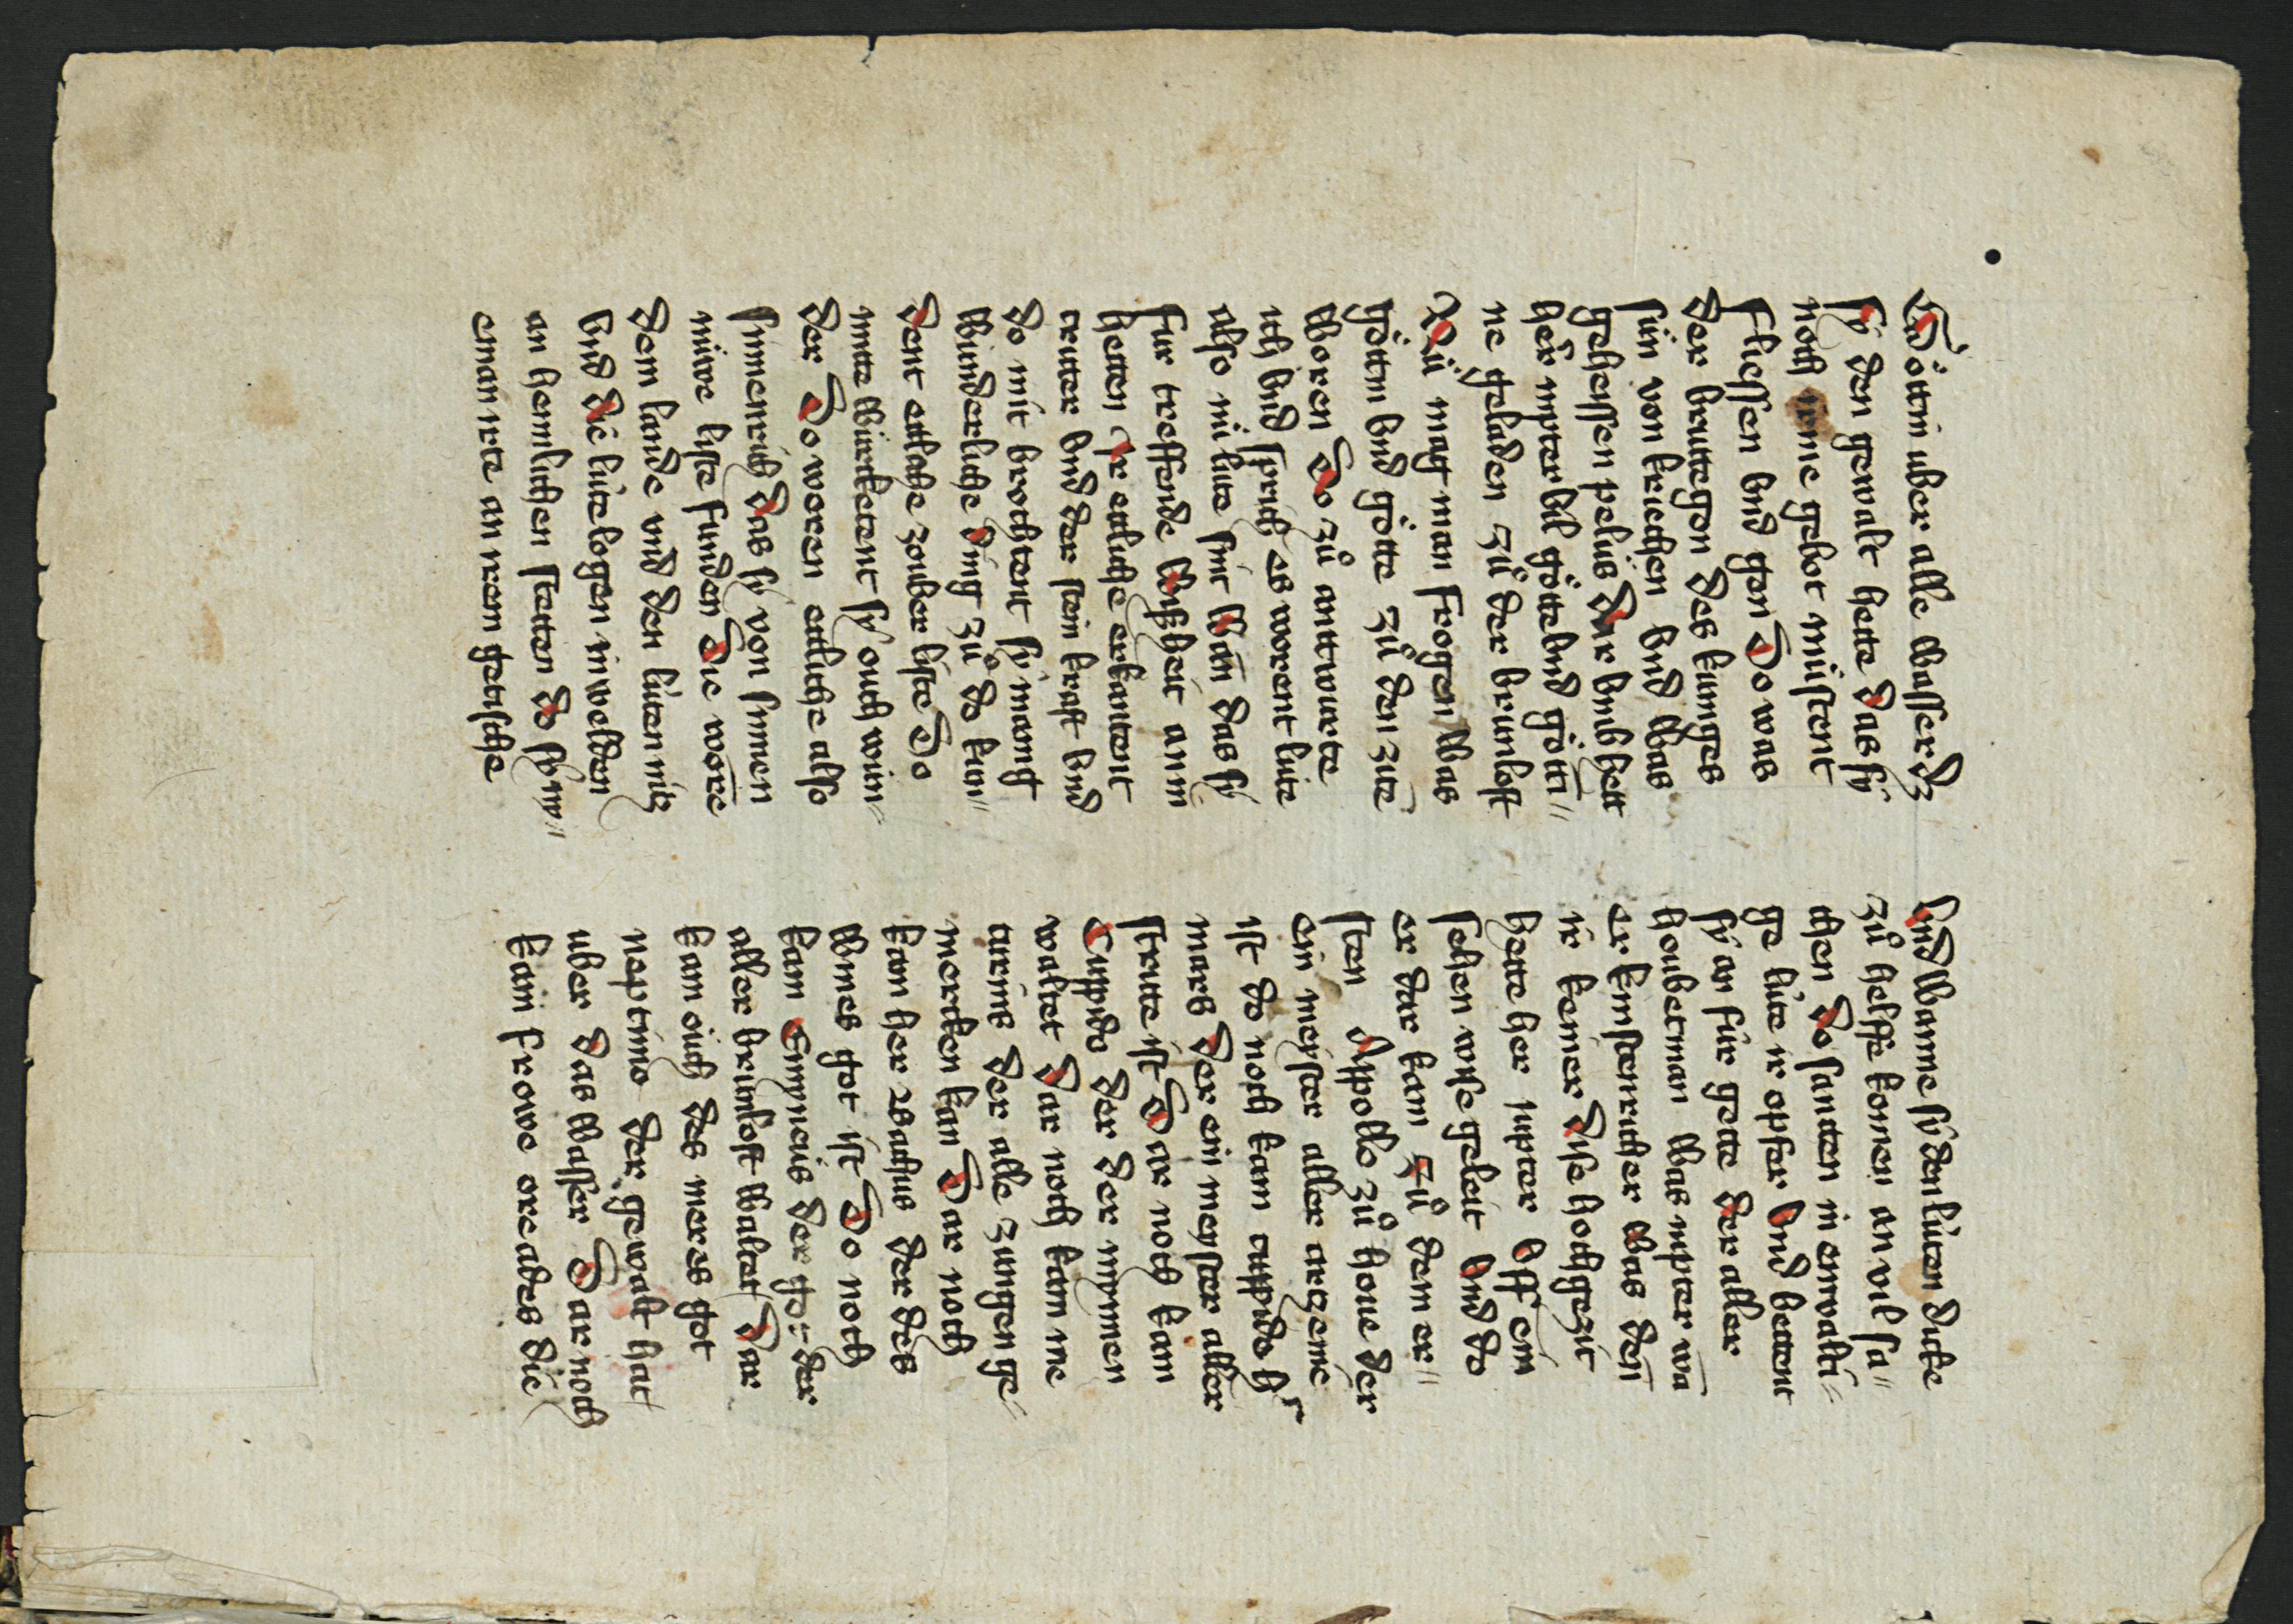 Göttin uber alle wasser dz
sy den gewalt hette das sy
noch irme gebot müstent
fliessen vnd gen Do was
der brutegon des kunges
sün von kriechen vnd was
geheissen pelus Dar vmb hett
her iupter vil götte vnd götti„
ne geladen zů der brunloft
Nü mag man frogen was
göttin vnd götte zů den zite
woren Do zů anttwurte
ich vnd sprich es worent lute
also nü lute sint wan das sy
fur treffende wißheit an in
hetten Ir etliche erkantent
cruter vnd der stein kraft vnd
do mit brochtent sy maing
wunderliche ding zů do kun„
dent etliche zouber liste Do
mitte würcketent sy ouch wun„
der Do woren etliche also
sinnenrich das sy von sinnen
nüwe liste funden Die wore
dem lande vnd den lüten nütz
vnd die lüte logen in welden
an heimlichen stetten do sy ny„
eman irte an irem getische
Vnd wanne sy den lüten dicke
zů helffe komen an vil sa„
chen Do santen in einvalti„
ge lüte ir opfer vnd bettent
sy an für gette der aller
houbetman was iupter wa
er kunstenricher was den
ir keiner Dise hochgezit
hette her iupter vff ein
sehen wise geleit vnd do
er dar kam zů dem er„
sten Appollo zů hone der
ein meyster aller artzenie
ist do noch kam cuppido h'r
mars der ein meyster aller
stritte ist Dar noch kam
Cuppido der der mynnen
waltet Dar noch kam me
turius der alle zungen ge„
mercken kan Dar noch
kam her Wachus der des
wines got ist Do noch
kam Emyneus der got der
aller brunloft waltet Dar
kam ouch des meres got
neptuno der gewalt hat
uber das wasser Dar noch
kam frowe oreades die